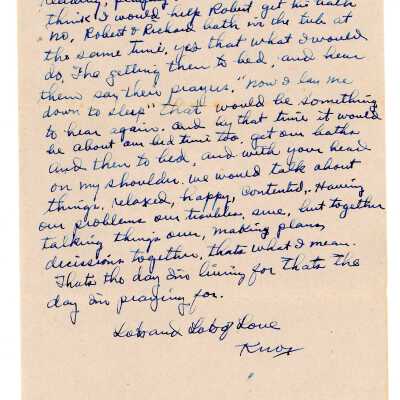 think I would help Robert get his bath
no, Robert & Richard bath in the tub at
the same time, yes that what I would
do. The getting them to bed, and hear
them say their prayers. "Now I lay me
down to sleep" that would be something
to hear again. and by that time it would
be about our bed time too. get our baths
and then to bed, and with your head
on my shoulder. we would talk about
things, relaxed, happy, contented. Having
our problems our troubles, sure, but together
talking things over, making plans,
decissions together, thats what I mean.
Thats the day Im living for Thats the
day Im praying for.
Lots and Lots of Love
Knox